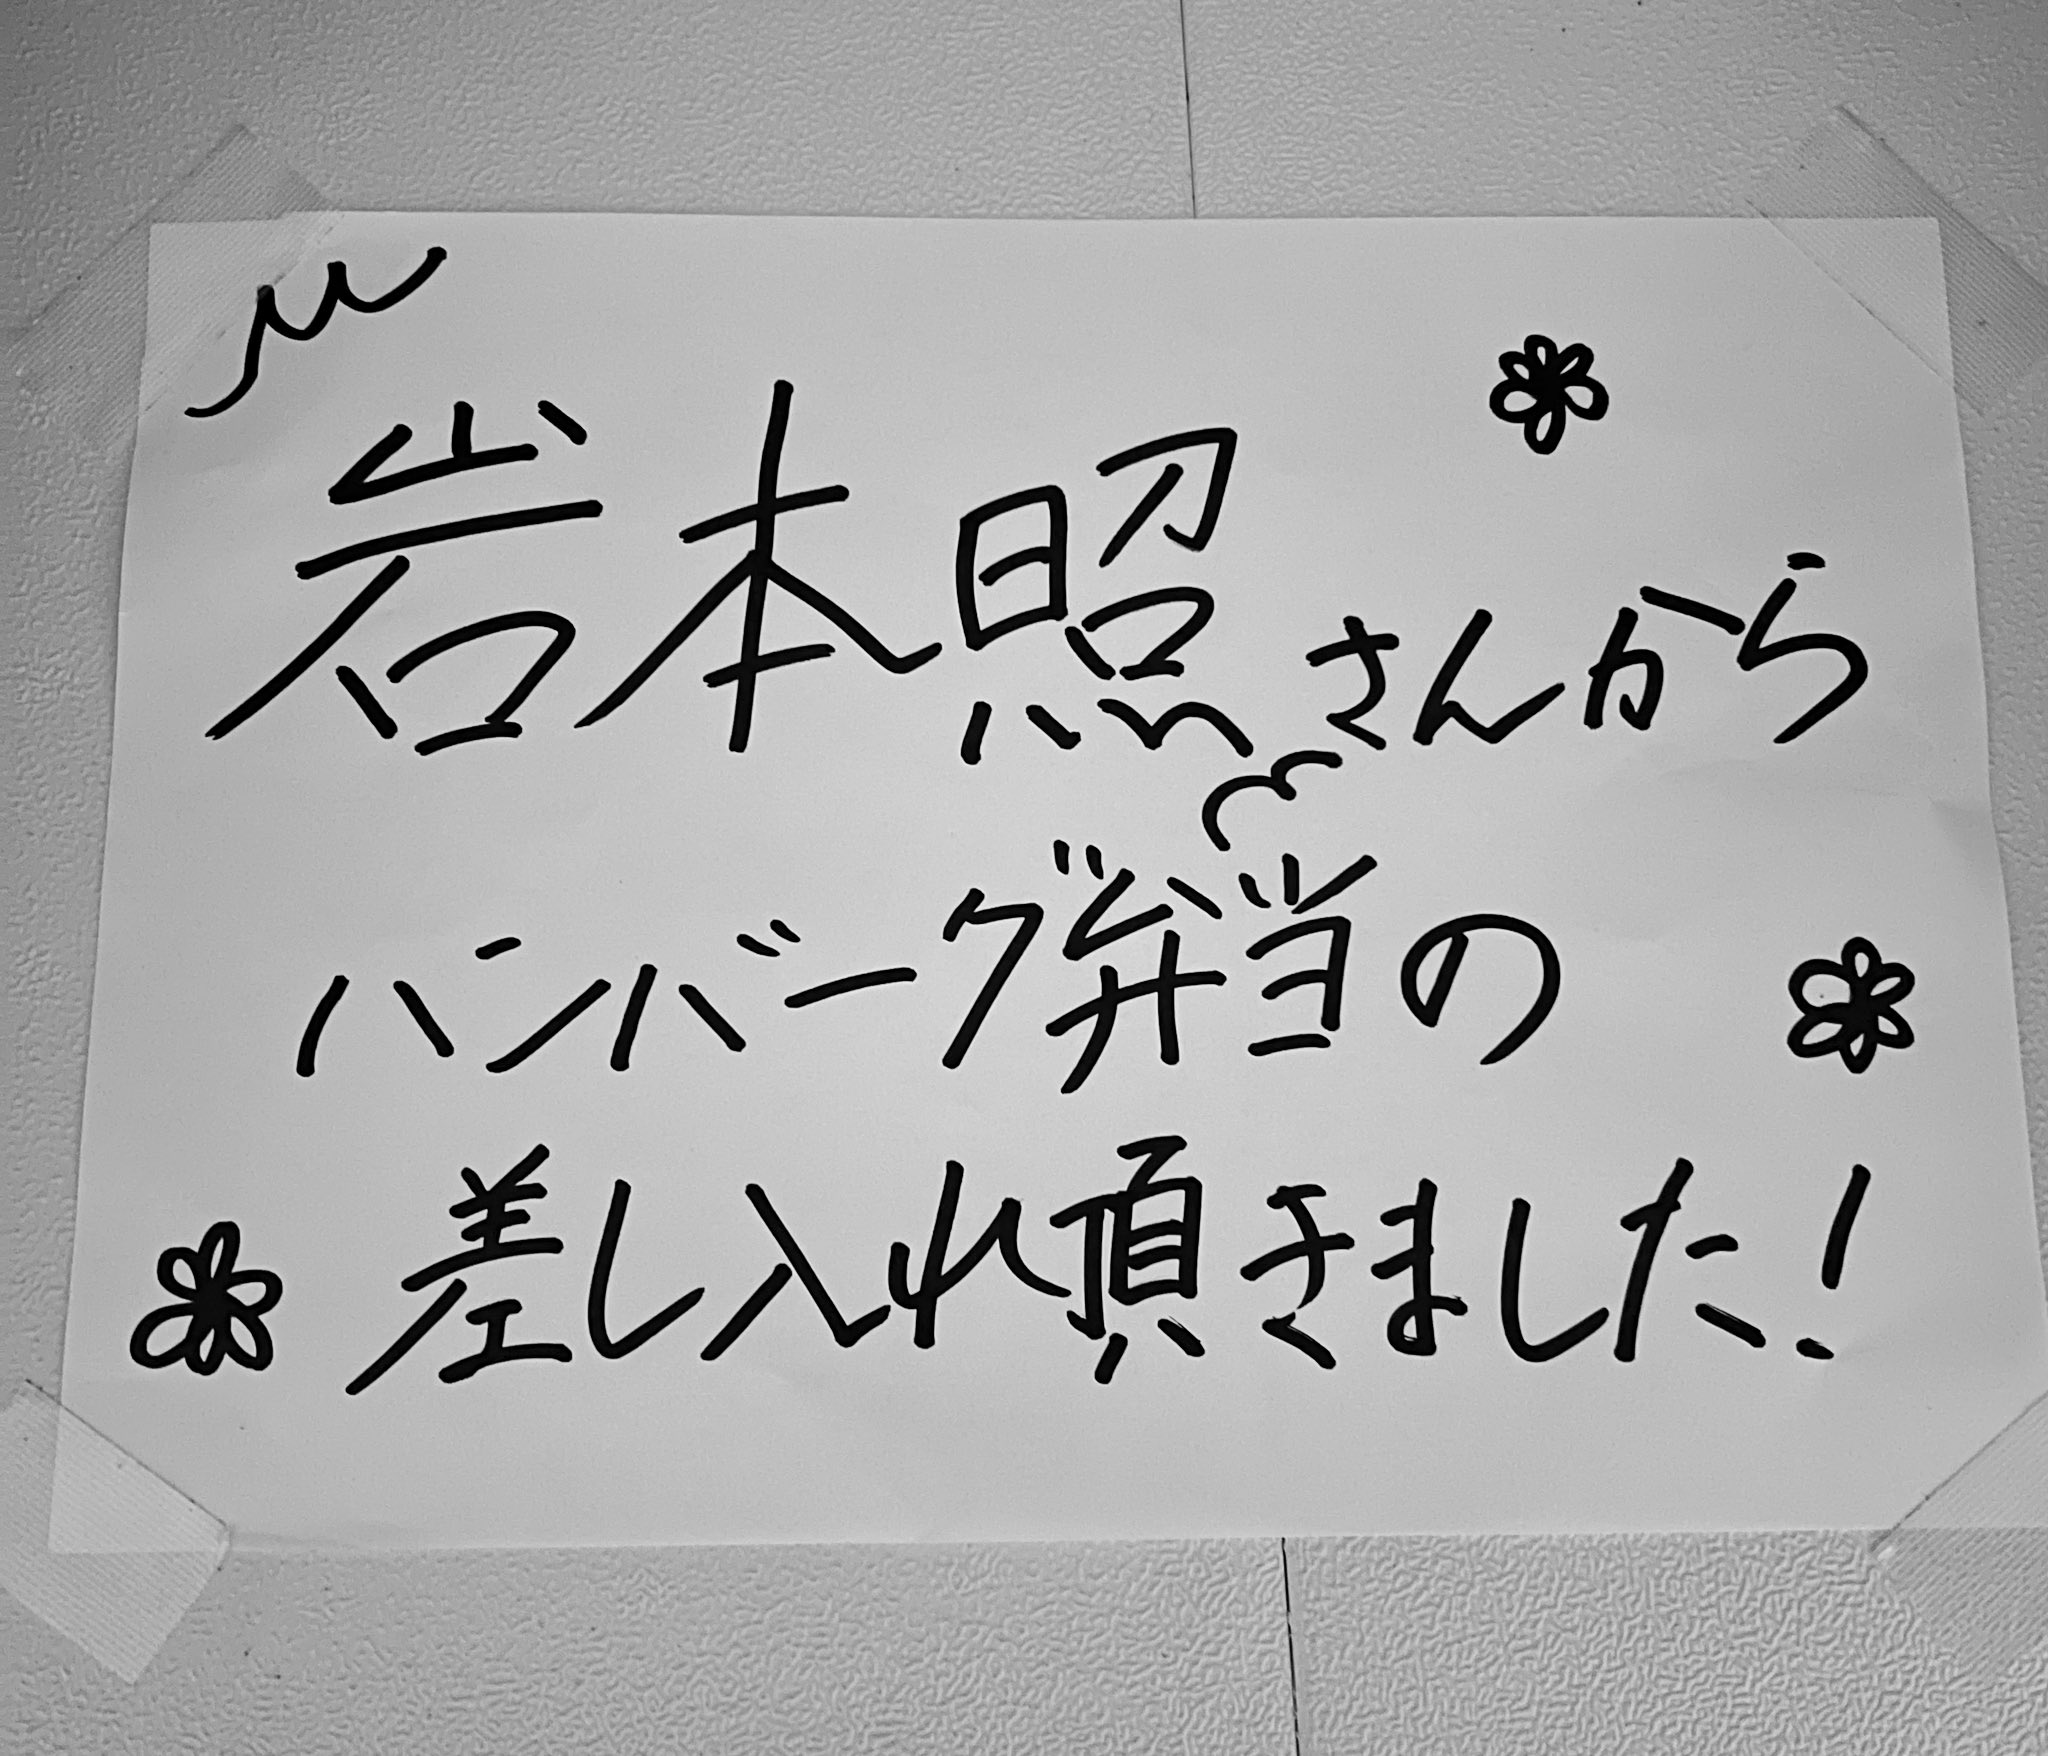 岩本照さんから
ハンバーグ弁当の
差し入れ頂きました!